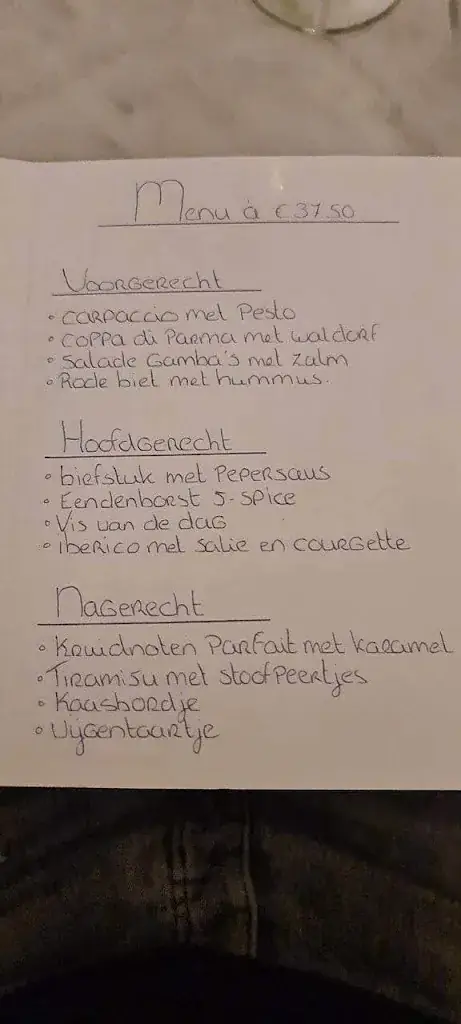 Menu à € 37.50
Voorgerecht
• carpaccio met Pesto
• coppa di Parma met waldorf
• Salade Gamba's met zalm
• Rode biet met hummus.
Hoofdgerecht
• biefstuk met Pepersaus
• Eendenborst 5-spice
• Vis van de dag
• iberico met salie en courgette
Nagerecht
• Kruidnoten Parfait met karamel
• Tiramisu met stoofpeertjes
• Kaasbordje
• Vijgentaartje